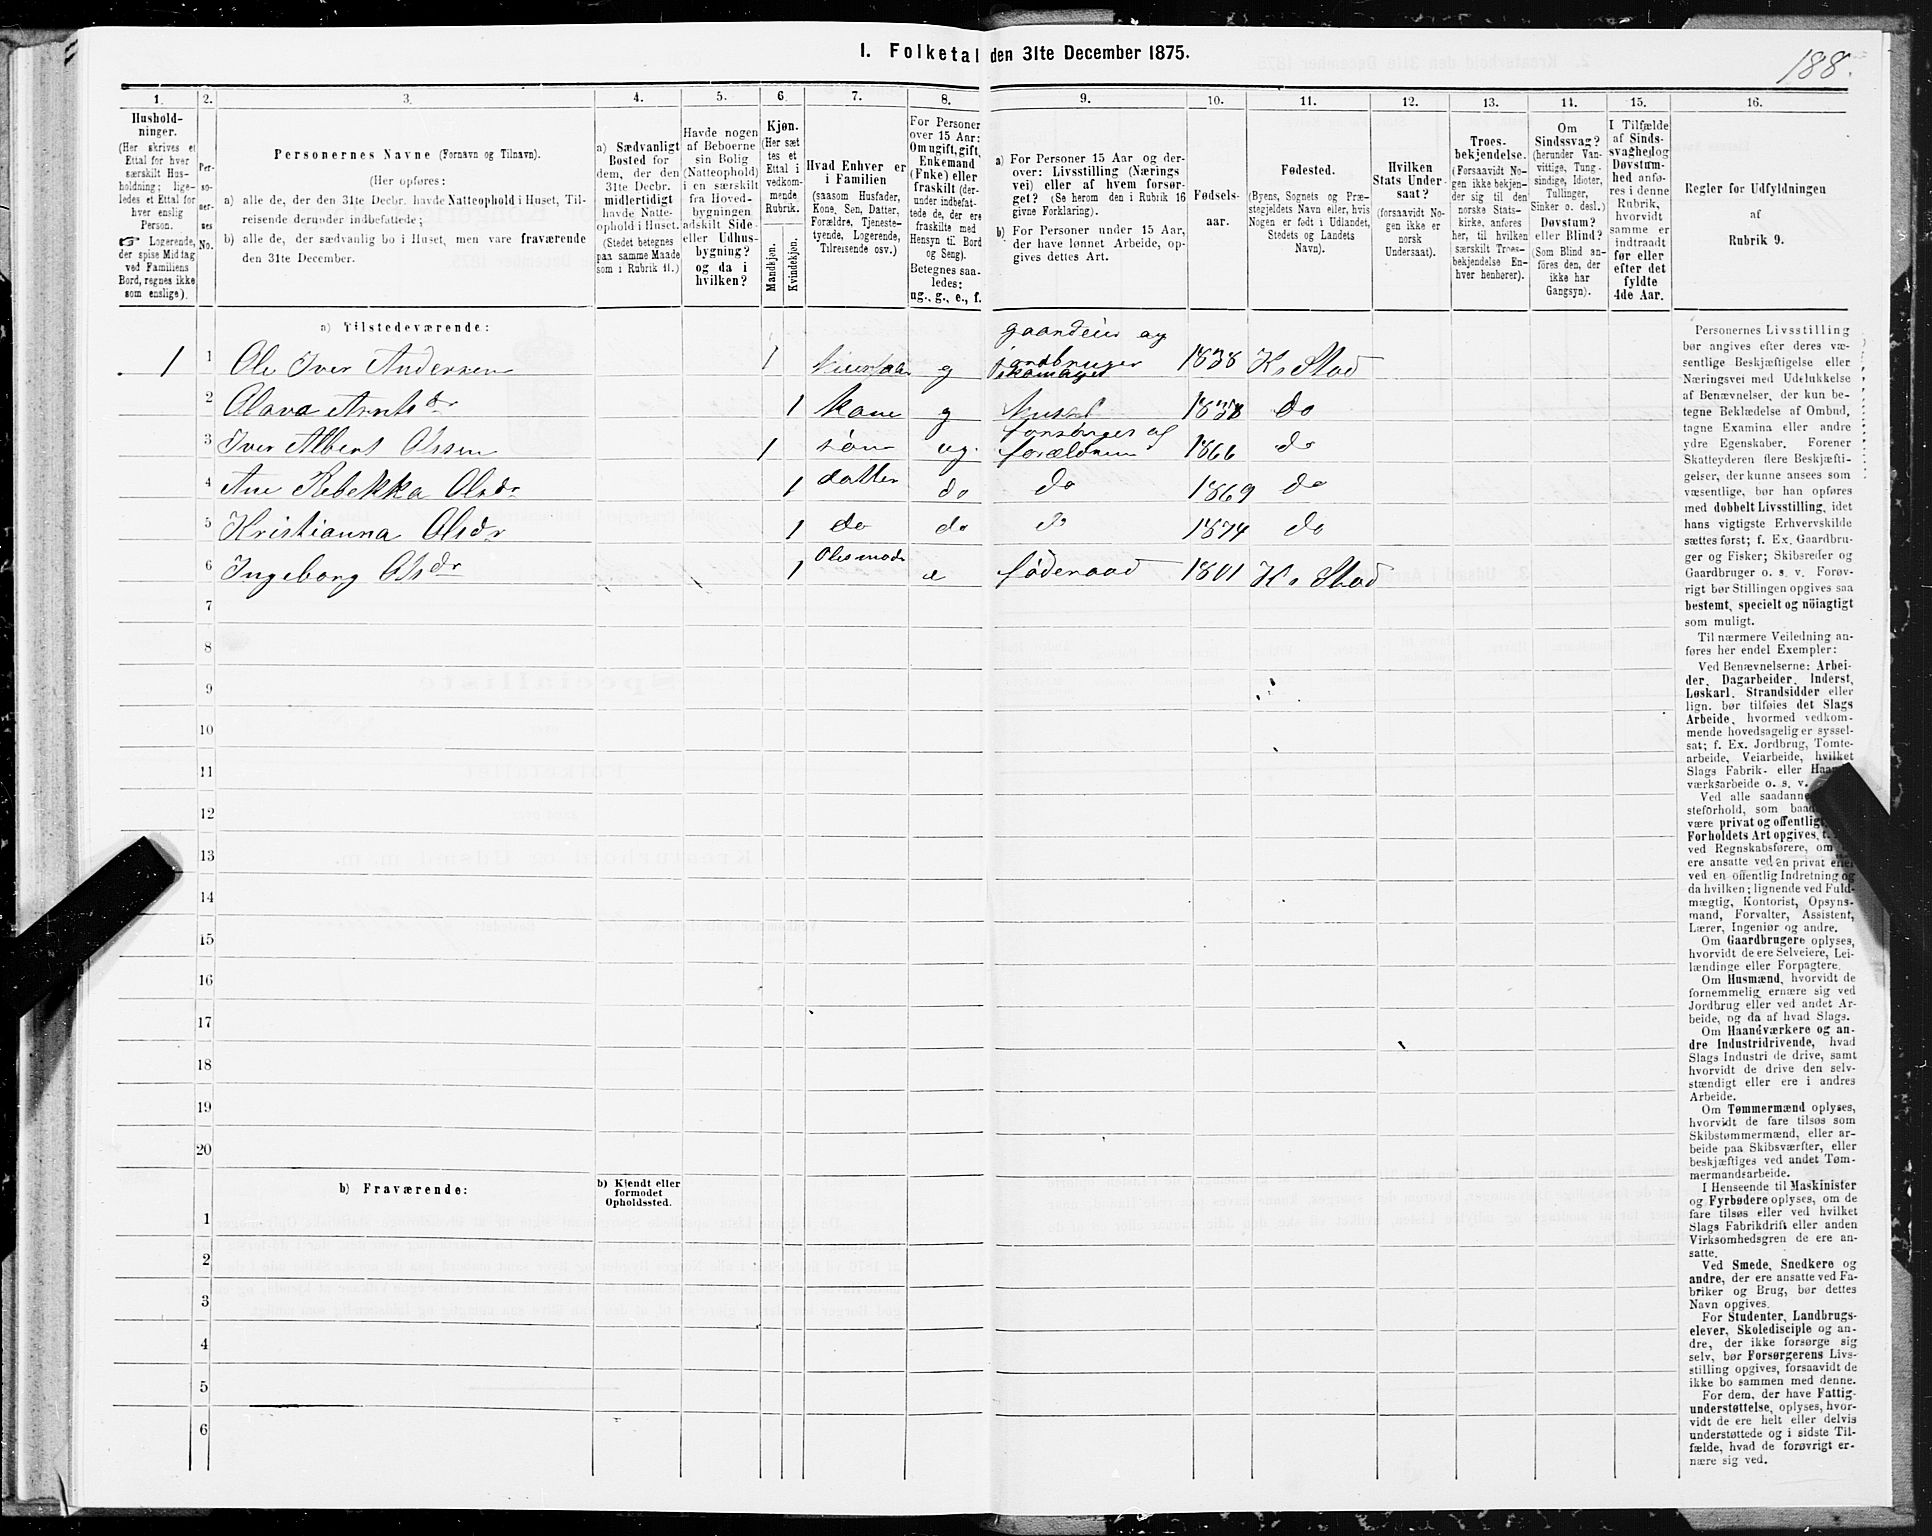 I. Folketal den 31te December 1875.
188.
1.
2.
3.
4.
5.
6.
7.
8.
9.
10.
11.
12.
13.
14.
15.
16.
Hushold-
ninger.
(Her skrives et
Ettal for hver
særskilt Hus-
holdning; lige-
ledes et Ettal for
hver enslig
Person.
☞ Logerende,
der spise Middag
ved Familiens
Bord, regnes ikke
som enslige).
Per-
so-
ner-
nes
No.
Personernes Navne (Fornavn og Tilnavn).
(Her opføres:
a) alle de, der den 31te Decbr. havde Natteophold i Huset, Til-
reisende derunder indbefattede;
b) alle de, der sædvanlig bo i Huset, men vare fraværende
den 31te December.
a) Sædvanligt
Bosted for
dem, der den
31te Decbr.
midlertidigt
havde Natte-
ophold i Huset.
(Stedet betegnes
paa samme Maade
som i Rubrik 11.)
Havde nogen
af Beboerne
sin Bolig
(Natteophold)
i en særskilt
fra Hoved-
bygningen
adskilt Side-
eller Udhus-
bygning?
og da i
hvilken?
Kjøn.
(Her sæt
tes et
Ettal i
vedkom-
mende
Rubrik.
Mandkjøn.
Kvindekjøn.
Hvad Enhver er
i Familien
(saasom Husfader,
Kone, Søn, Datter,
Forældre, Tjeneste-
tyende, Logerende,
Tilreisende osv.)
For Personer
over 15 Aar:
Om ugift, gift,
Enkemand
(Enke) eller
fraskilt (der-
under indbefat-
tede de, der ere
fraskilte med
Hensyn til Bord
og Seng).
Betegnes saa-
ledes:
ug., g., e., f.
a) For Personer 15 Aar og der-
over: Livsstilling (Nærings
vei) eller af hvem forsør-
get? (Se herom den i Rubrik 16
givne Forklaring).
b) For Personer under 15 Aar,
der have lønnet Arbeide, op-
gives dettes Art.
Fødsels-
aar.
Fødested.
(Byens, Sognets og Præ-
stegjeldets Navn eller, hvis
Nogen er født i Udlandet,
Stedets og Landets
Navn).
Hvilken
Stats Under-
saat?
(forsaavidt No-
gen ikke er
norsk
Undersaat).
Troes-
bekjendelse.
(Forsaavidt No-
gen ikke bekjen-
der sig til den
norske Stats-
kirke, anføres
her, til hvilken
særskilt Troes-
bekjendelse En-
hver henhører).
Om
Sindssvag?
(herunder Van-
vittige, Tung-
sindige, Idioter,
Tullinger,
Sinker o. desl.)
Døvstum?
eller Blind?
(Som Blind an-
føres den, der
ikke har
Gangsyn).
I Tilfælde
af Sinds-
svaghed og
Døvstum-
hed anfø-
res i denne
Rubrik,
hvorvidt
samme er
indtraadt
før eller
efter det
fyldte
4de Aar.
Regler for Udfyldningen
af
Rubrik 9.
a) Tilstedeværende:
gaardeier og
1 1 Ole Iver Andersen 1 g jordbruger 1838 Kr Stad
2 Olava Arntsdr 1 kone g 1838 do
forsørges af
3 Iver Albert Olssen 1 søn ug. forældrene 1866 do
4 Ane Rebekka Olsdr 1 datter do do 1869 do
5 Kristianna Olsdr 1 do do do 1874 do
6 Ingeborg Olsdr 1 Oles moder e føderaad 1801 Kr Stad
7
8
9
10
11
12
13
14
15
16
17
18
19
20
b) Fraværende:
b) Kjendt eller
formodet
Opholdssted.
1
2
3
4
5
6
Personernes Livsstilling
bør angives efter deres væ-
sentlige Beskjæftigelse eller
Næringsvei med Udelukkelse
af Benævnelser, der kun be-
tegne Beklædelse af Ombud,
tagne Examina eller andre
ydre Egenskaber. Forener
Skatteyderen flere Beskjæfti-
gelser, der kunne ansees som
væsentlige, bør han opføres
med dobbelt Livsstilling, idet
hans vigtigste Erhvervskilde
sættes først; f. Ex. Gaardbru-
ger og Fisker; Skibsreder og
Gaardbruger o. s. v. Forøv-
rigt bør Stillingen opgives saa
bestemt, specielt og nöiagtigt
som muligt.
Til nærmere Veiledning an-
føres her endel Exempler:
Ved Benævnelserne: Arbei-
der, Dagarbeider, Inderst,
Løskarl, Strandsidder eller
lign. bør tilføies det Slags
Arbeide, hvormed vedkom-
mende hovedsagelig er syssel-
sat; f. Ex. Jordbrug, Tomte-
arbeide, Veiarbeide, hvilket
Slags Fabrik- eller
værksarbeide o. s. v.
Ved alle saadanne
steforhold, som
være privat og offentlig,
Forholdets Art opgives,
ved Regnskabsførere, om
ere ansatte ved en privat eller
ved en offentlig Indretning og
da hvilken; lignende ved Fuld-
mægtig, Kontorist, Opsyns-
mand, Forvalter, Assistent,
Lærer, Ingeniør og andre.
Om Gaardbrugere oplyses,
hvorvidt de ere Selveiere, Lei-
lændinge eller Forpagtere.
Om Husmænd, hvorvidt de
fornemmelig ernære sig ved
Jordbrug eller ved andet Ar-
beide, og da af hvad Slags.
Om Haandværkere og an-
dre Industridrivende, hvad
Slags Industri de drive, samt
hvorvidt de drive den selv-
stændigt eller ere i andres
Arbeide.
Om Tømmermænd oplyses,
hvorvidt de fare tilsøs som
Skibstømmermænd, eller ar-
beide paa Skibsværfter, eller
beskjæftiges ved andet Tøm-
mermandsarbeide.
I Henseende til Maskinister
og Fyrbødere oplyses, om de
fare tilsøs eller ved hvilket
Slags Fabrikdrift eller anden
Virksomhedsgren de ere an-
satte.
Ved Smede, Snedkere og
andre, der ere ansatte ved Fa-
briker og Brug, bør dettes
Navn opgives.
For Studenter, Landbrugs-
elever, Skoledisciple og an-
dre, der ikke forsørge sig
selv, bør Forsørgerens Livs-
stilling opgives, forsaavidt de
ikke bo sammen med denne.
For dem, der have Fattig-
understøttelse, oplyses, hvor-
vidt de ere helt eller delvis
understøttede og i sidste Til-
fælde, hvad de forøvrigt er-
nære sig ved.